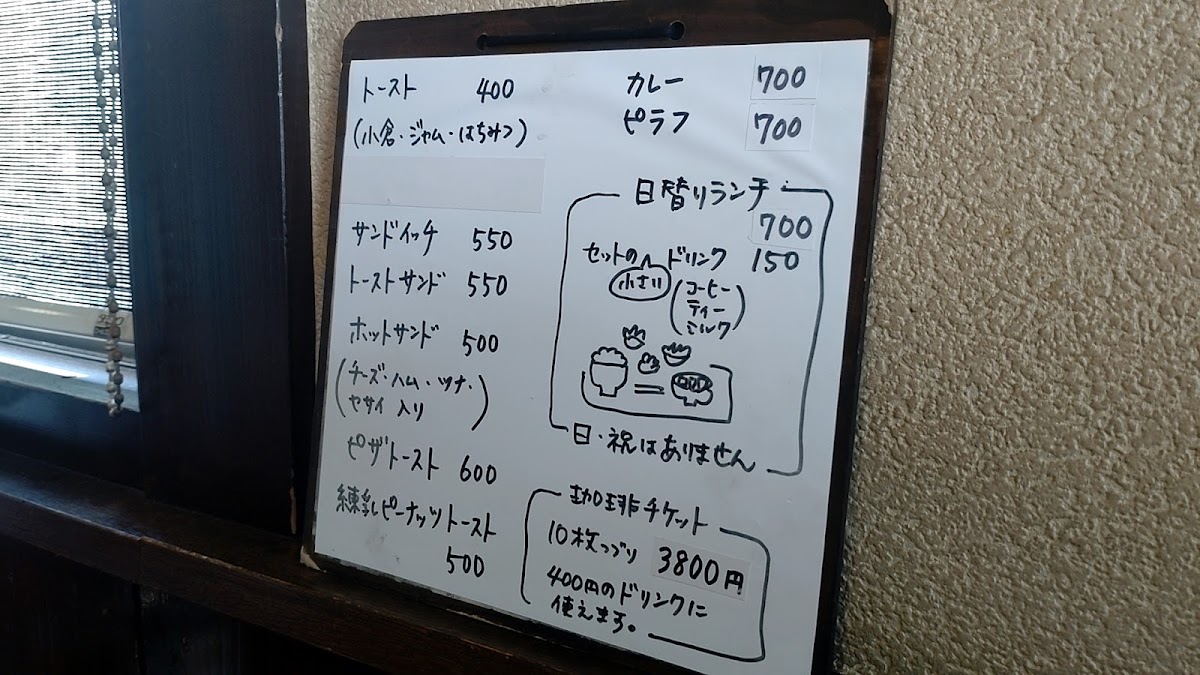 トースト 400
(小倉・ジャム・はちみつ)
サンドイッチ 550
トーストサンド 550
ホットサンド 500
(チーズ・ハム・ツナ・
ヤサイ 入り)
ピザトースト 600
練乳ピーナッツトースト
500
カレー 700
ピラフ 700
日替りランチ
700
セットの小さいドリンク 150
(コーヒー
ティー
ミルク)
日・祝はありません
珈琲チケット
10枚つづり 3800円
400円のドリンクに
使えます。